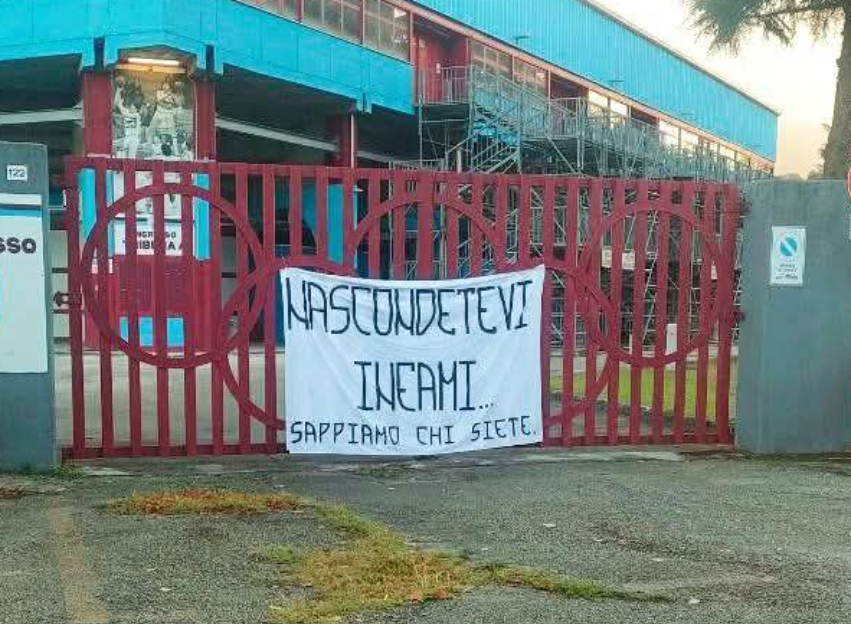 122
SSO
NASCONDETEVI
INFAMI...
SAPPIAMO CHI SIETE.